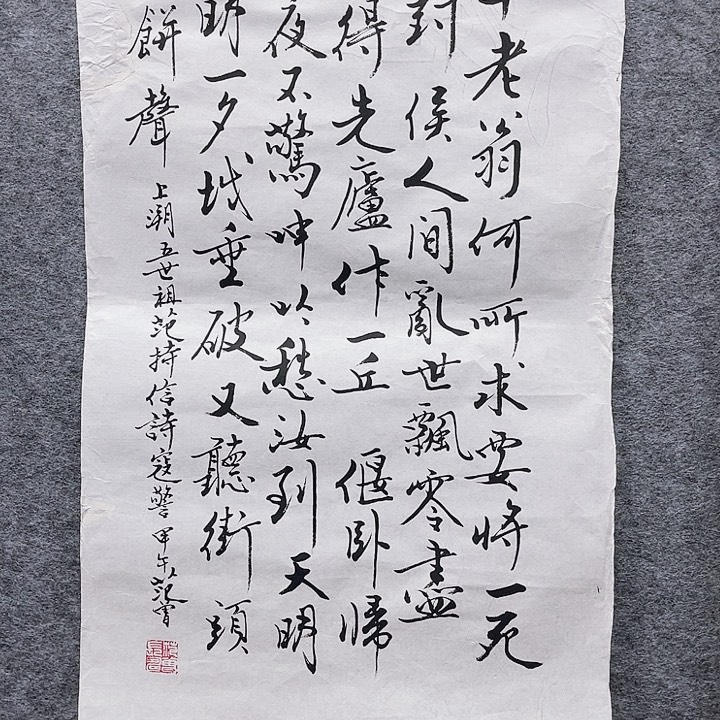 老翁何所求要將一死
封侯人間亂世飄零盡
得先廬作一丘偃卧歸
夜不驚呻吟愁汝到天明
明一夕城垂破又聽街頭
餅聲
上溯五世祖范持信詩寇警甲午范曾